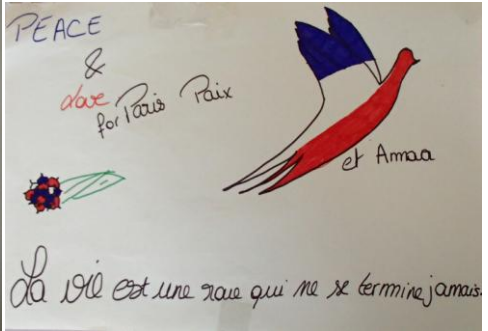 PEACE
&
Love
for Paris Paix
et Amaa
La vie est une roue qui ne se termine jamais.